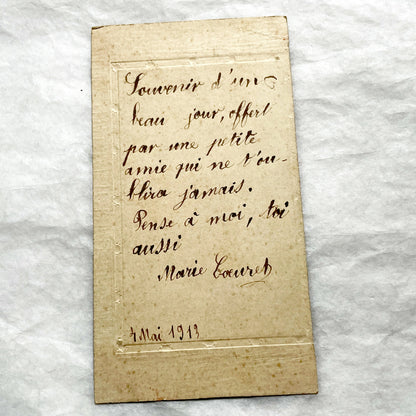 Souvenir d'un
beau jour, offert
par une petite
amie qui ne t'ou-
blira jamais.
Pense à moi, toi
aussi
Marie Coeuret
4 Mai 1913